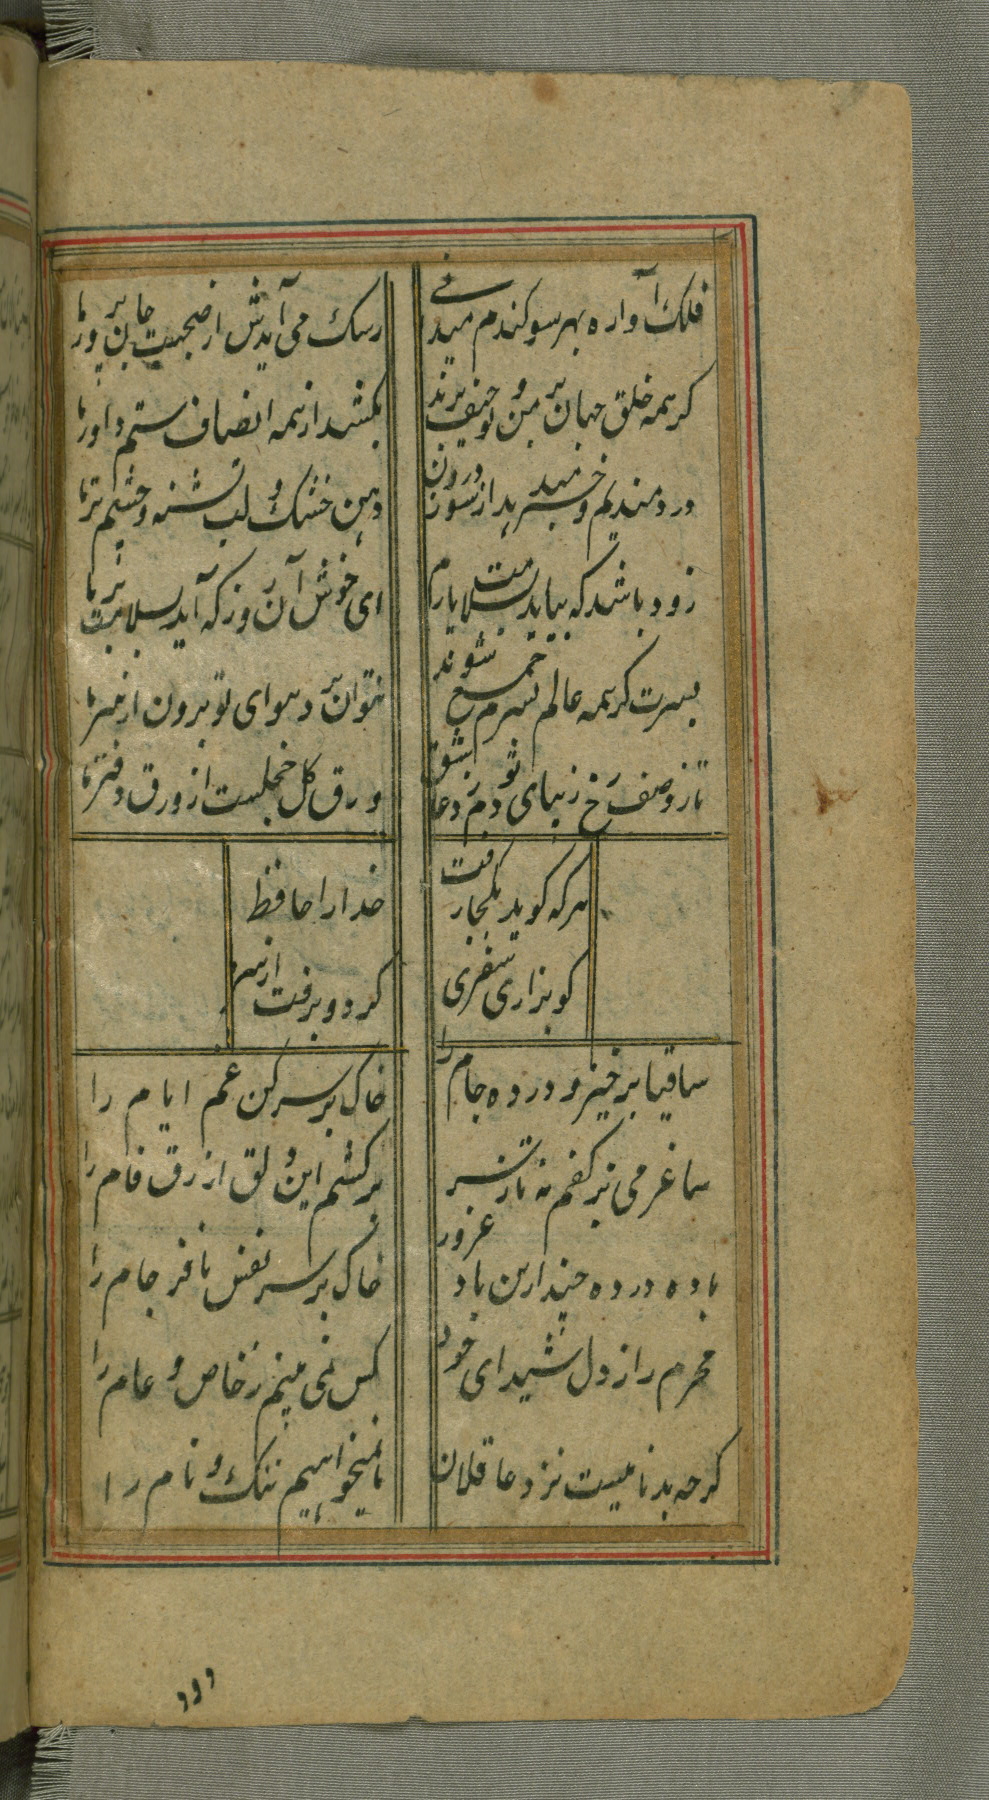 فلک آواره بهر سو کندم میدانی
رشک می آیدش از صحبت جان پرور ما
گر همه خلق جهان بر من و تو حیف برند
بکشد از همه انصاف ستم داور ما
دردمندیم و خبر میدهد از سوز درون
دهن خشک و لب تشنه و چشم تر ما
زود باشد که بیاید بسلامت یارم
ای خوش آن روز که آید بسلامت بر ما
بسرت گر همه عالم بسرم جمع شوند
نتوان برد هوای تو برون از سر ما
تا ز وصف رخ زیبای تو دم زد
ورق گل خجلست از ورق دفتر ما
هر که گوید بکجا رفت
خدارا حافظ
گو بزاری سفری
کرد و برفت از بر
ساقیا برخیز و در ده جام را
خاک بر سر کن غم ایام را
ساغر می بر کفم نه تا ز سر
بر کشم این دلق ازرق فام را
باده در ده چند ازین باد غرور
خاک بر سر نفس نافرجام را
محرم راز دل شیدای خود
کس نمی بینم ز خاص و عام را
گرچه بدنامیست نزد عاقلان
ما نمیخواهیم ننگ و نام را